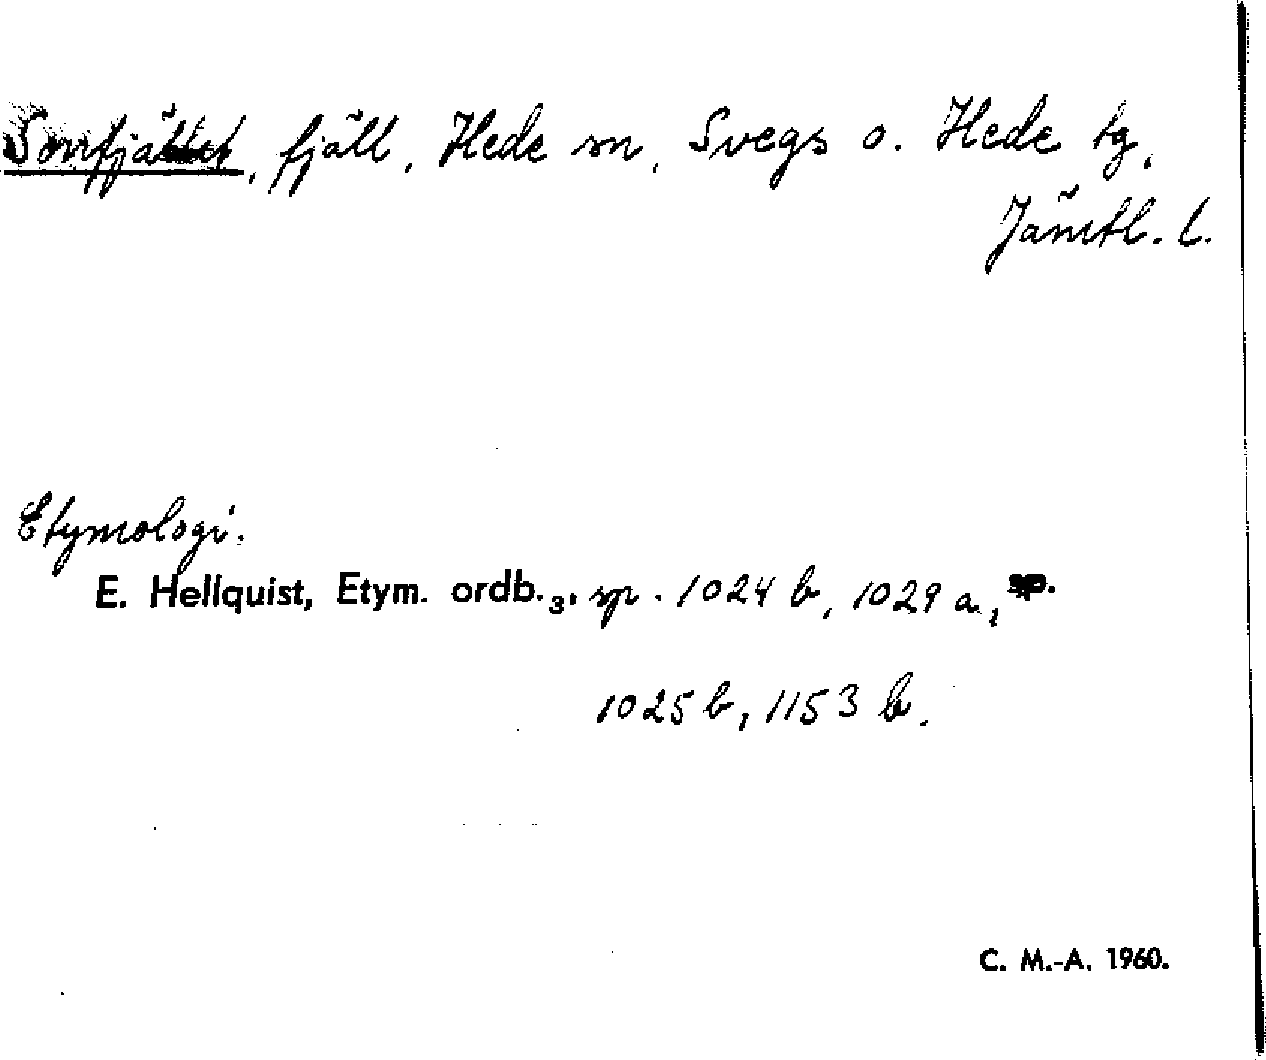 Sonfjället, fjäll, Hede sn, Svegs o. Hede tg,
Jämtl. l.
Etymologi.
E. Hellquist, Etym. ordb.₃, sp. 1024 b, 1029 a,
1025 b, 1153 b.
C. M.-A. 1960.